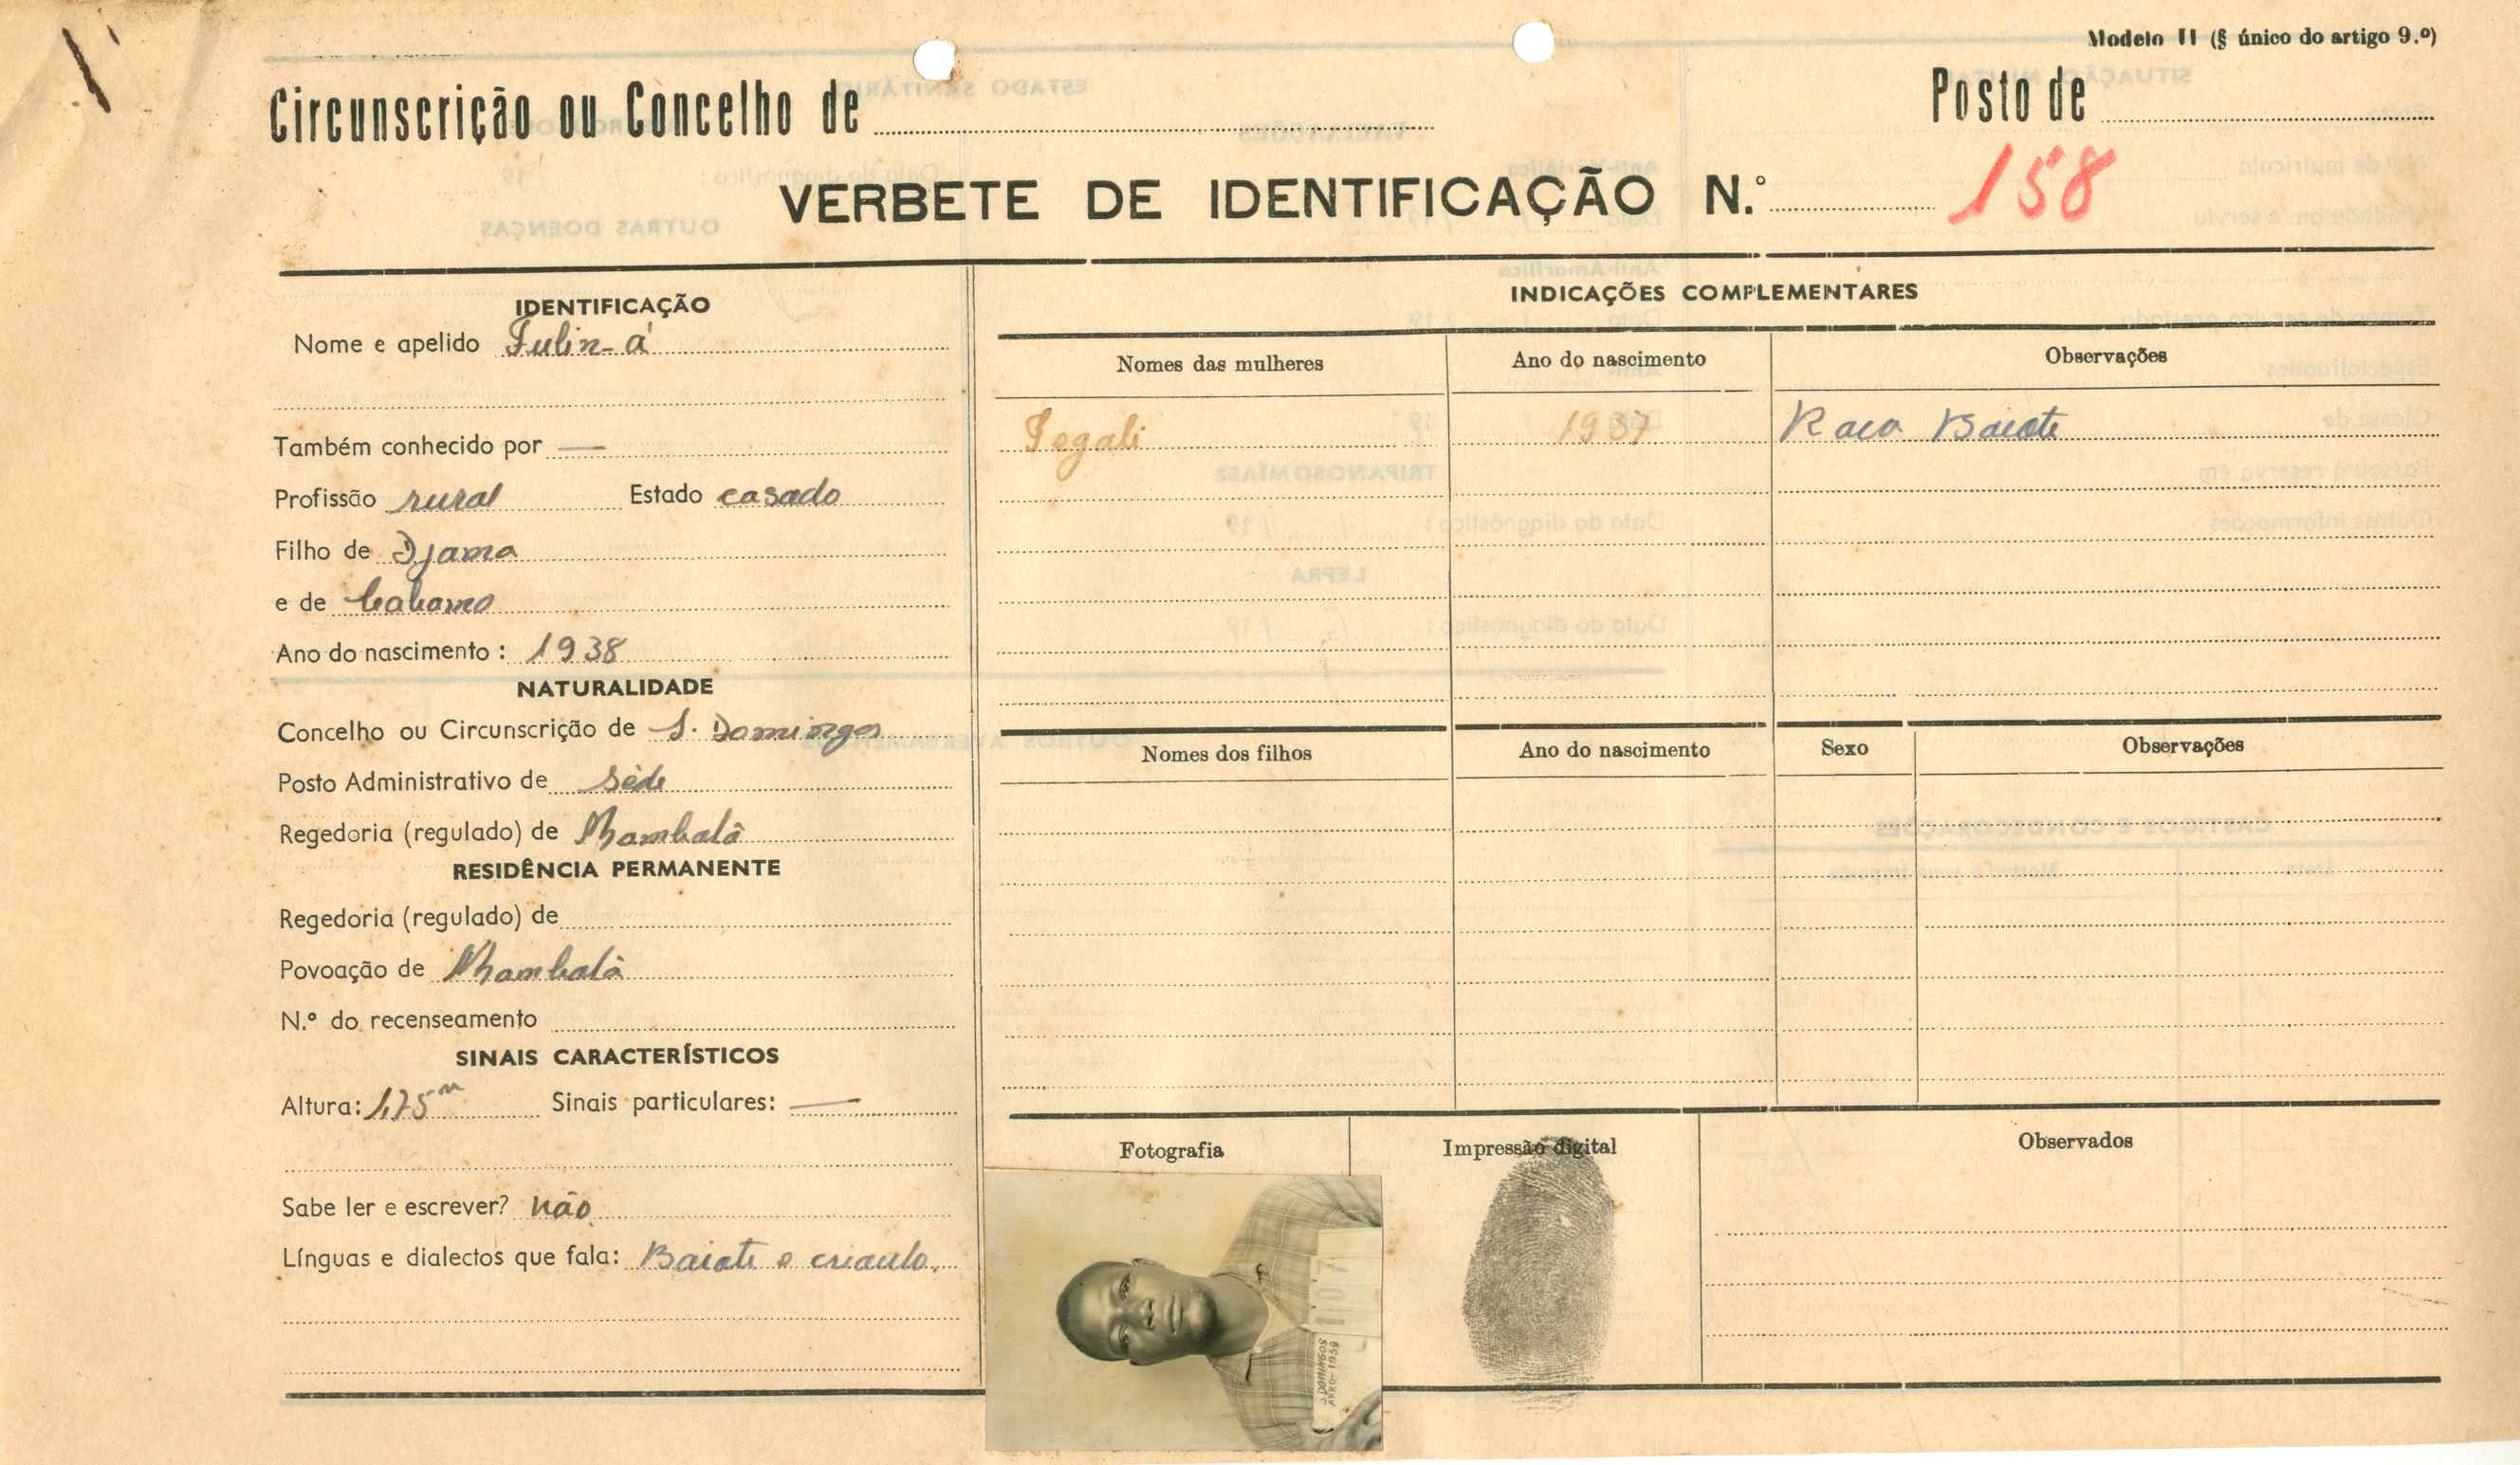 Modelo II (§ único do artigo 9.º)
Circunscrição ou Concelho de
Posto de
VERBETE DE IDENTIFICAÇÃO N.º 158
IDENTIFICAÇÃO
Nome e apelido Julin-á
Também conhecido por —
Profissão rural Estado casado
Filho de Djama
e de
Ano do nascimento: 1938
NATURALIDADE
Concelho ou Circunscrição de S. Domingos
Posto Administrativo de Séde
Regedoria (regulado) de
RESIDÊNCIA PERMANENTE
Regedoria (regulado) de
Povoação de
N.º do recenseamento
SINAIS CARACTERÍSTICOS
Altura: 1,75 m Sinais particulares: —
Sabe ler e escrever? não
Línguas e dialectos que fala: Baiote e crioulo.
INDICAÇÕES COMPLEMENTARES
Nomes das mulheres Ano do nascimento Observações
Segali 1937 Raça Baiote
Nomes dos filhos Ano do nascimento Sexo Observações
Fotografia Impressão digital Observados
S. DOMINGOS
1959